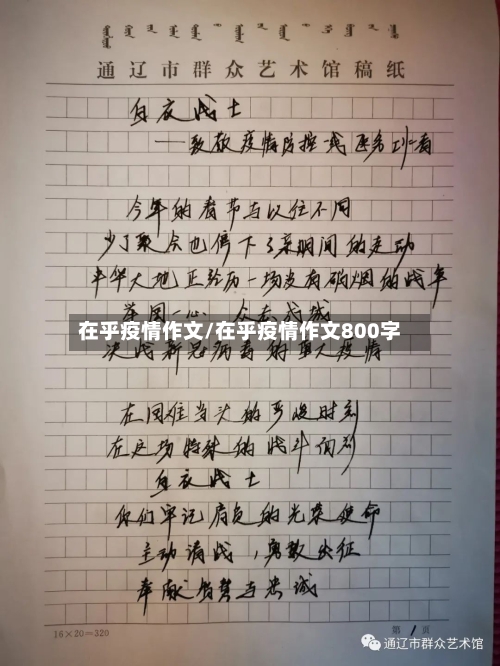 通辽市群众艺术馆稿纸
白衣战士
——致敬疫情防控一线医务工作者
今年的春节与以往不同
少了聚会也停下了亲朋间的走动
中华大地正经历一场没有硝烟的战争
举国一心 众志成城
在乎疫情作文/在乎疫情作文800字
决战新冠病毒的重大疫情
在国难当头的严峻时刻
在这场特殊的战斗面前
白衣战士
你们牢记肩负的光荣使命
主动请战,勇敢出征
奉献智慧与忠诚
16×20=320
第1页
通辽市群众艺术馆